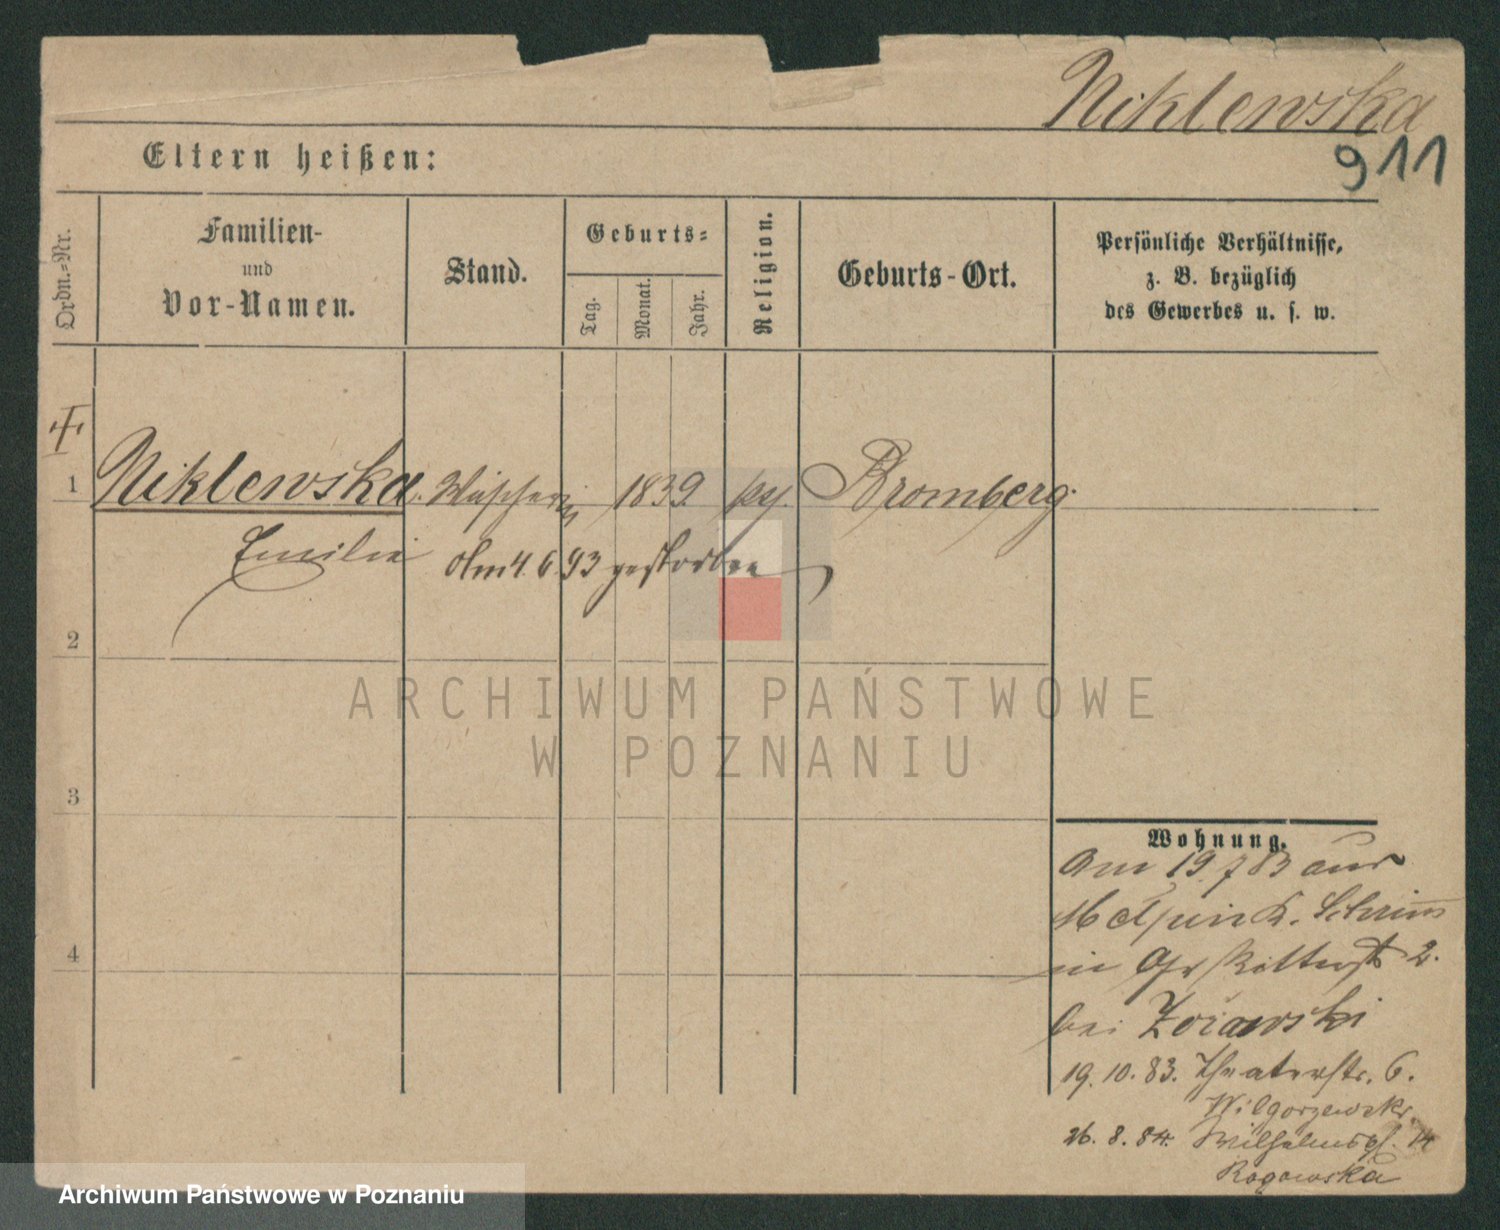 Niklewska
911
Eltern heißen:
Ordn.=Nr.
Familien-
und
Vor-Namen.
Stand.
Geburts=
Tag.
Monat.
Jahr.
Religion.
Geburts-Ort.
Persönliche Verhältnisse,
z. B. bezüglich
des Gewerbes u. s. w.
1 Niklewska Wäscherin 1839 Bromberg
Emilie am 4.6.93 gestorben
2
ARCHIWUM PAŃSTWOWE
W POZNANIU
3
Wohnung.
Am 19.7 83 aus
K. Schrimm
in Gr Ritterstr 2.
4
bei
19.10.83. Theaterstr. 6.
26.8.84. Wilhelmspl. 14
Rogowska
Archiwum Państwowe w Poznaniu